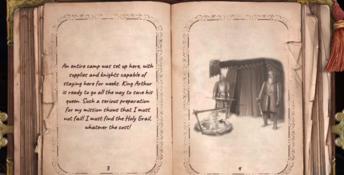 An entire camp was set up here, with
supplies and knights capable of
staying here for weeks. King Arthur
is ready to go all the way to save his
queen. Such a serious preparation
for my mission shows that I must
not fail! I must find the Holy Grail,
whatever the cost!
3
4